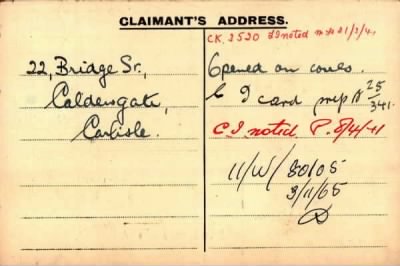 CLAIMANT'S ADDRESS.
CK. 2520 I noted 21/3/41
22, Bridge St.,
Caldewgate,
Carlisle.
Opened on
C I card prep 25/3/41
C.I. noted P. 8/4/41
11/W/ 80105
3/11/65